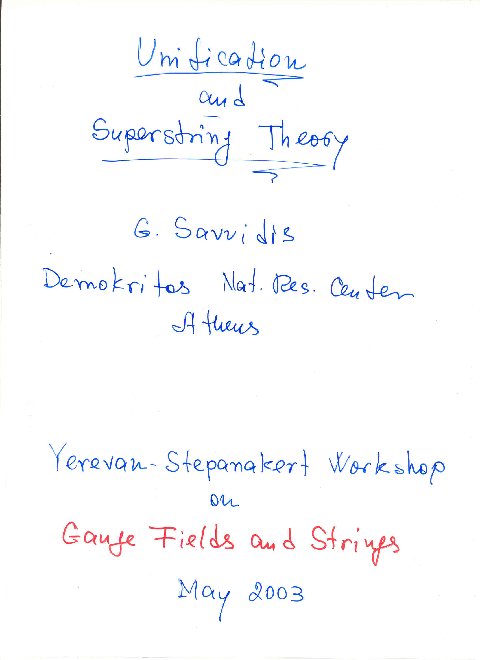 Unification
and
Superstring Theory
G. Savvidis
Demokritos Nat. Res. Center
Athens
Yerevan-Stepanakert Workshop
on
Gauge Fields and Strings
May 2003